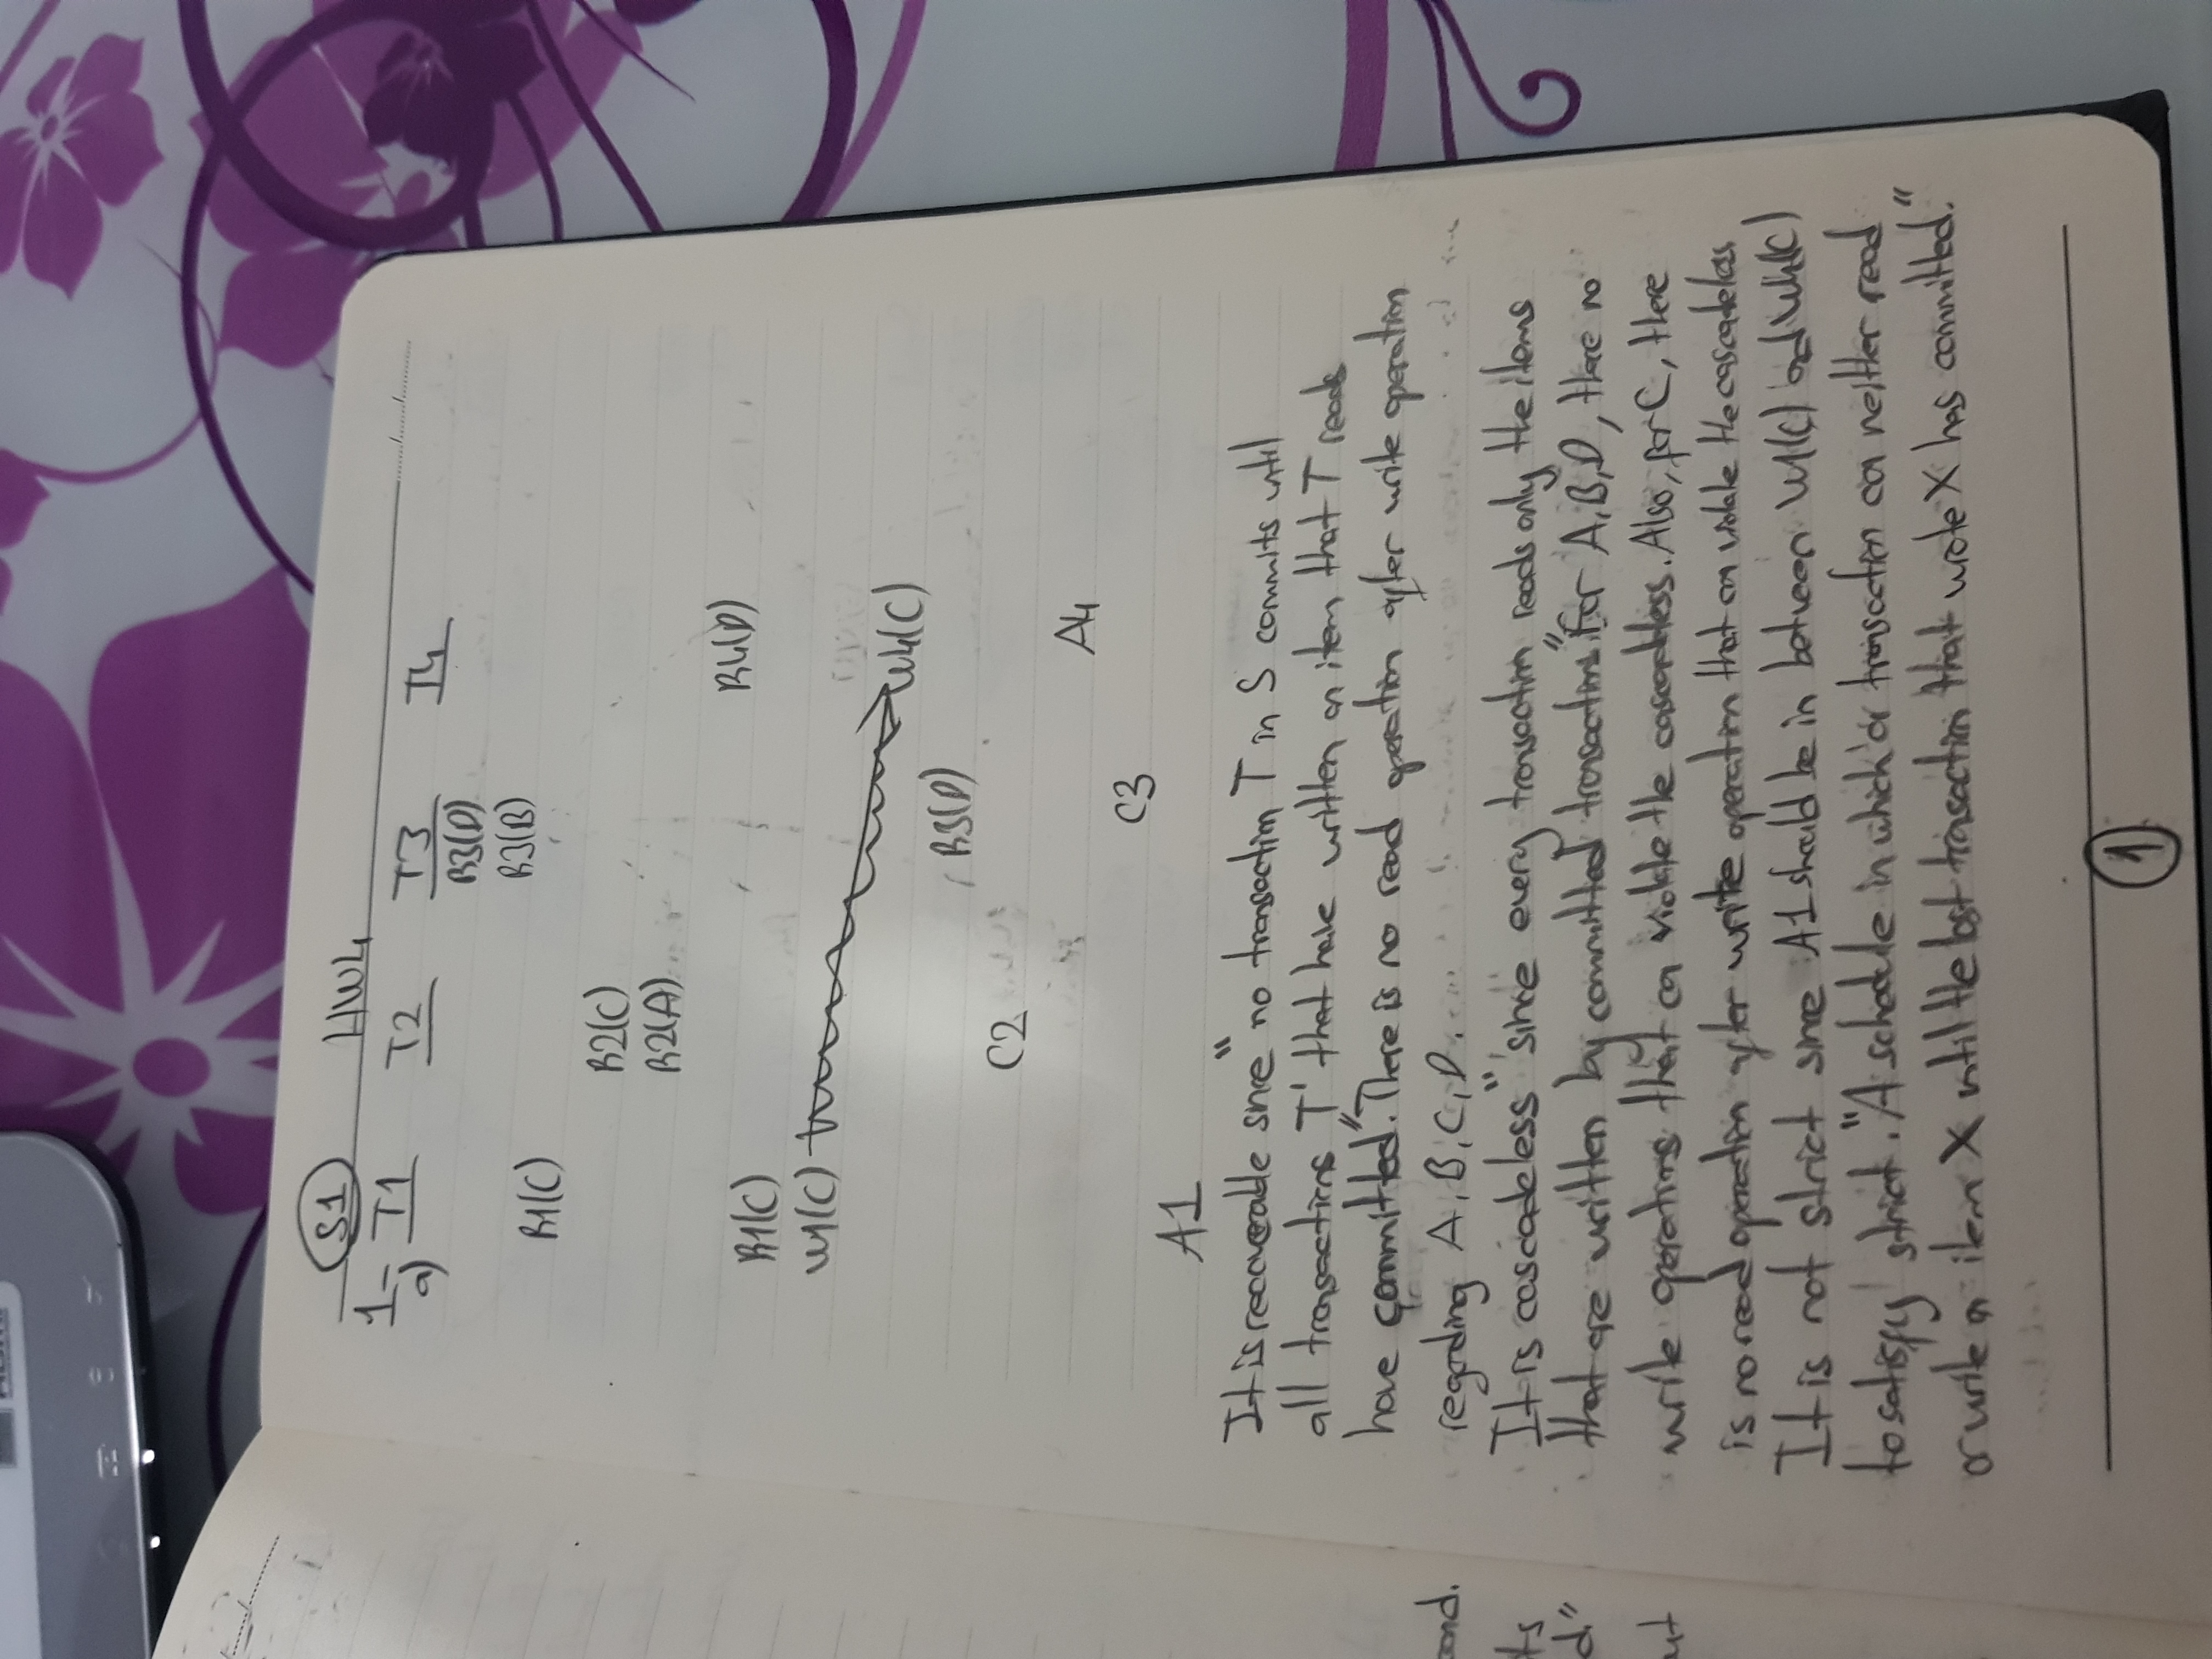 S1 HW4
1- T1 T2 T3 T4
a)
R3(D)
R3(B)
R1(C)
R2(C)
R2(A)
R4(D)
R1(C)
W1(C)
W4(C)
R3(D)
C2
A4
C3
A1
It is recoverable since "no transaction T in S commits until
all transactions T' that have written an item that T reads
have committed". There is no read operation after write operation
regarding A, B, C, D.
It is cascadeless "since every transaction reads only the items
that are written by committed transactions". For A, B, D, there no
write operations that can violate the cascadeless. Also, for C, there
is no read operation after write operation that can violate the cascadeless
It is not strict since A1 should be in between W1(C) and W4(C)
to satisfy strict. "A schedule in which a transaction can neither read
or write an item X until the last transaction that wrote X has committed."
1
ond.
ts
d"
ut